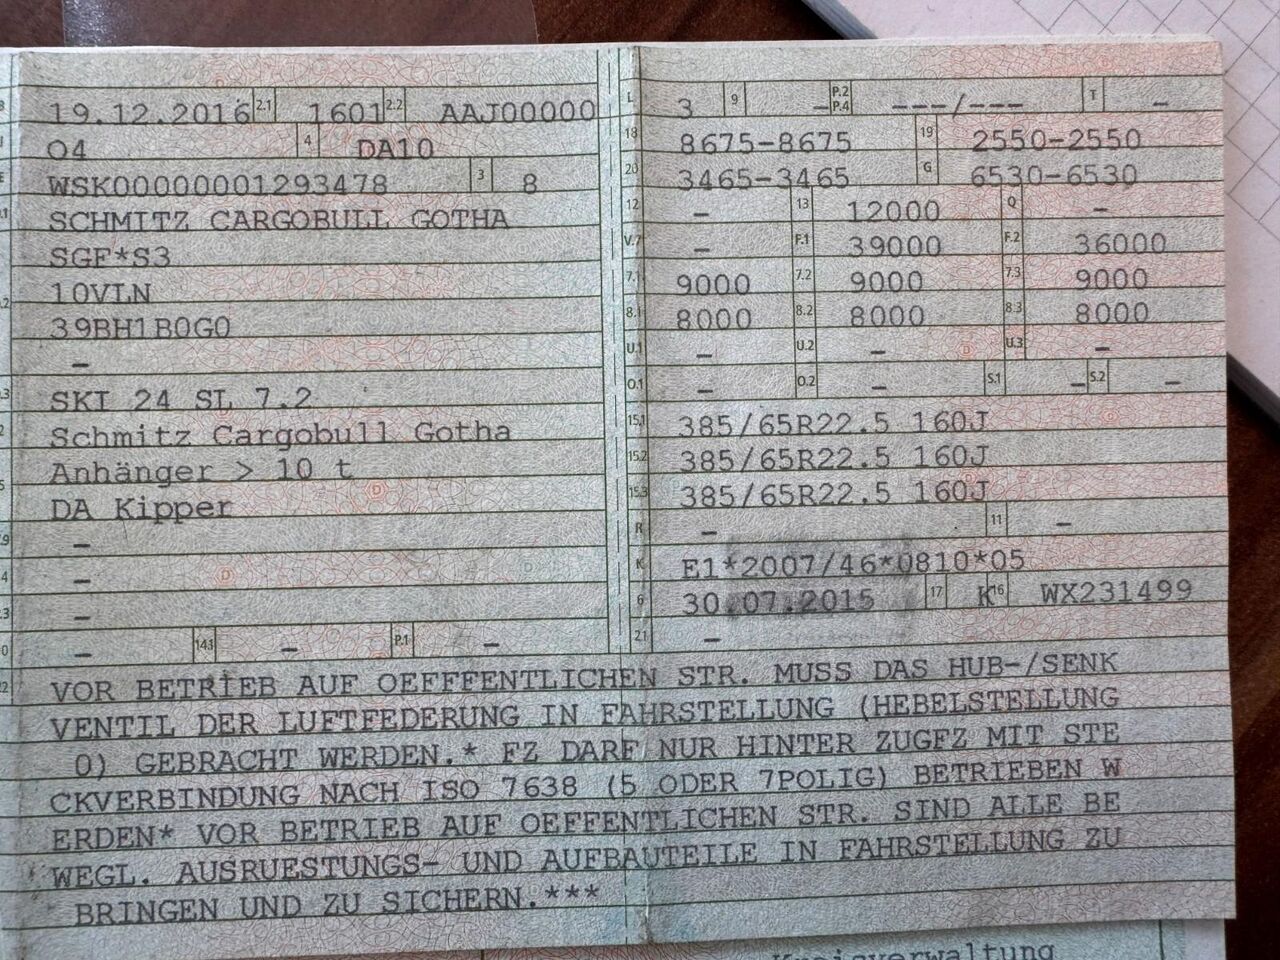 19.12.2016 2.1 1601 2.2 AAJ00000
O4 4 DA10
WSK00000001293478 3 8
SCHMITZ CARGOBULL GOTHA
SGF*S3
10VLN
39BH1B0G0
–
SKI 24 SL 7.2
Schmitz Cargobull Gotha
Anhänger > 10 t
DA Kipper
–
–
–
– 14.3 – P.1 –
L 3 9 – P.2 P.4 ---/--- T –
18 8675-8675 19 2550-2550
20 3465-3465 G 6530-6530
12 – 13 12000 Q –
V.7 – F.1 39000 F.2 36000
7.1 9000 7.2 9000 7.3 9000
8.1 8000 8.2 8000 8.3 8000
U.1 – U.2 – U.3 –
O.1 – O.2 – S.1 – S.2 –
15.1 385/65R22.5 160J
15.2 385/65R22.5 160J
15.3 385/65R22.5 160J
R – 11 –
K E1*2007/46*0810*05
6 30.07.2015 17 K 16 WX231499
21 –
22 VOR BETRIEB AUF OEFFFENTLICHEN STR. MUSS DAS HUB-/SENK
VENTIL DER LUFTFEDERUNG IN FAHRSTELLUNG (HEBELSTELLUNG
0) GEBRACHT WERDEN.* FZ DARF NUR HINTER ZUGFZ MIT STE
CKVERBINDUNG NACH ISO 7638 (5 ODER 7POLIG) BETRIEBEN W
ERDEN* VOR BETRIEB AUF OEFFENTLICHEN STR. SIND ALLE BE
WEGL. AUSRUESTUNGS- UND AUFBAUTEILE IN FAHRSTELLUNG ZU
BRINGEN UND ZU SICHERN.***
Kreisverwaltung